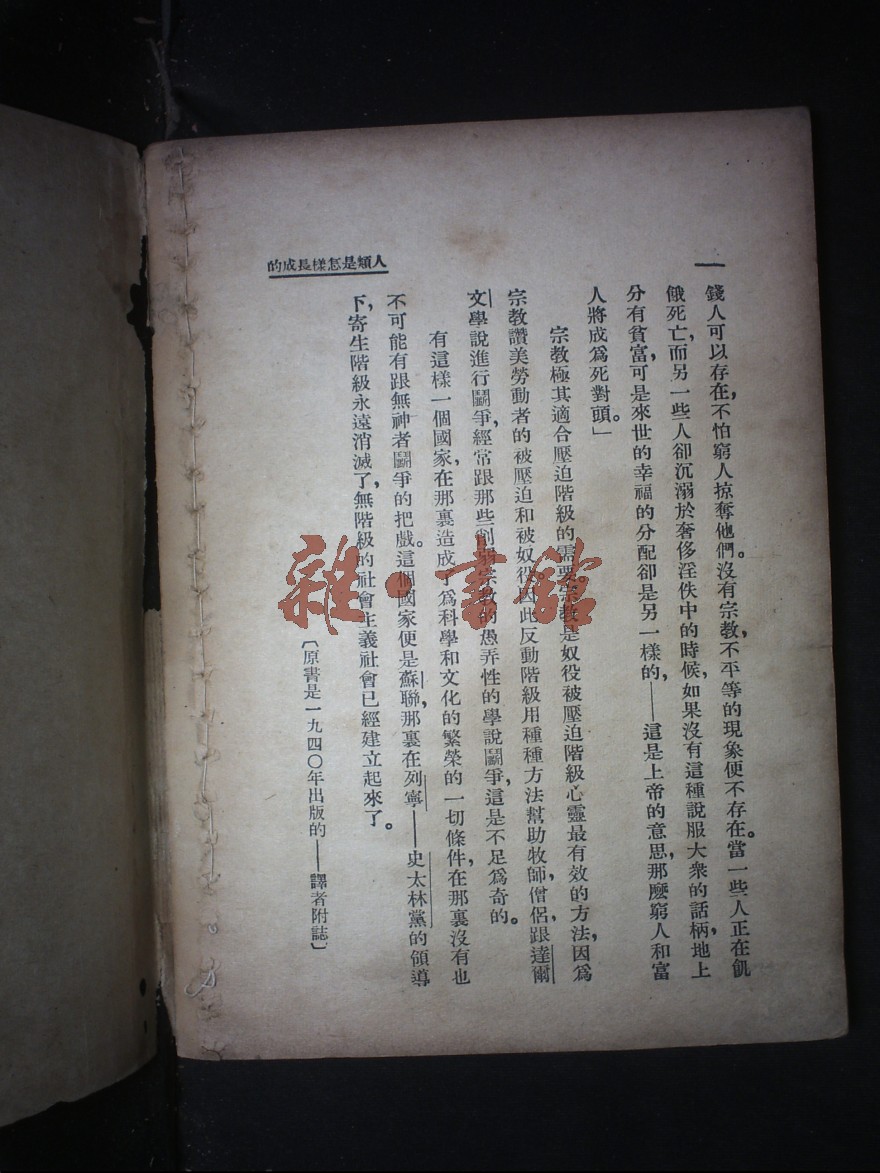 人類是怎樣長成的
一
錢人可以存在，不怕窮人掠奪他們。沒有宗教，不平等的現象便不存在。當一些人正在飢
餓死亡，而另一些人卻沉溺於奢侈淫佚中的時候，如果沒有這種說服大衆的話柄，地上
分有貧富，可是來世的幸福的分配卻是另一樣的，——這是上帝的意思，那麼窮人和富
人將成爲死對頭。」
宗教極其適合壓迫階級的需要。宗教是奴役被壓迫階級心靈最有效的方法，因爲
宗教讚美勞動者的被壓迫和被奴役。因此反動階級用種種方法幫助牧師，僧侶，跟達爾
文學說進行鬭爭，經常跟那些削弱宗教的愚弄性的學說鬭爭，這是不足爲奇的。
有這樣一個國家，在那裏造成了爲科學和文化的繁榮的一切條件，在那裏沒有也
不可能有跟無神者鬭爭的把戲。這個國家便是蘇聯，那裏在列寧——史太林黨的領導
下，寄生階級永遠消滅了，無階級的社會主義社會已經建立起來了。
〔原書是一九四〇年出版的——譯者附誌〕
雜·書館